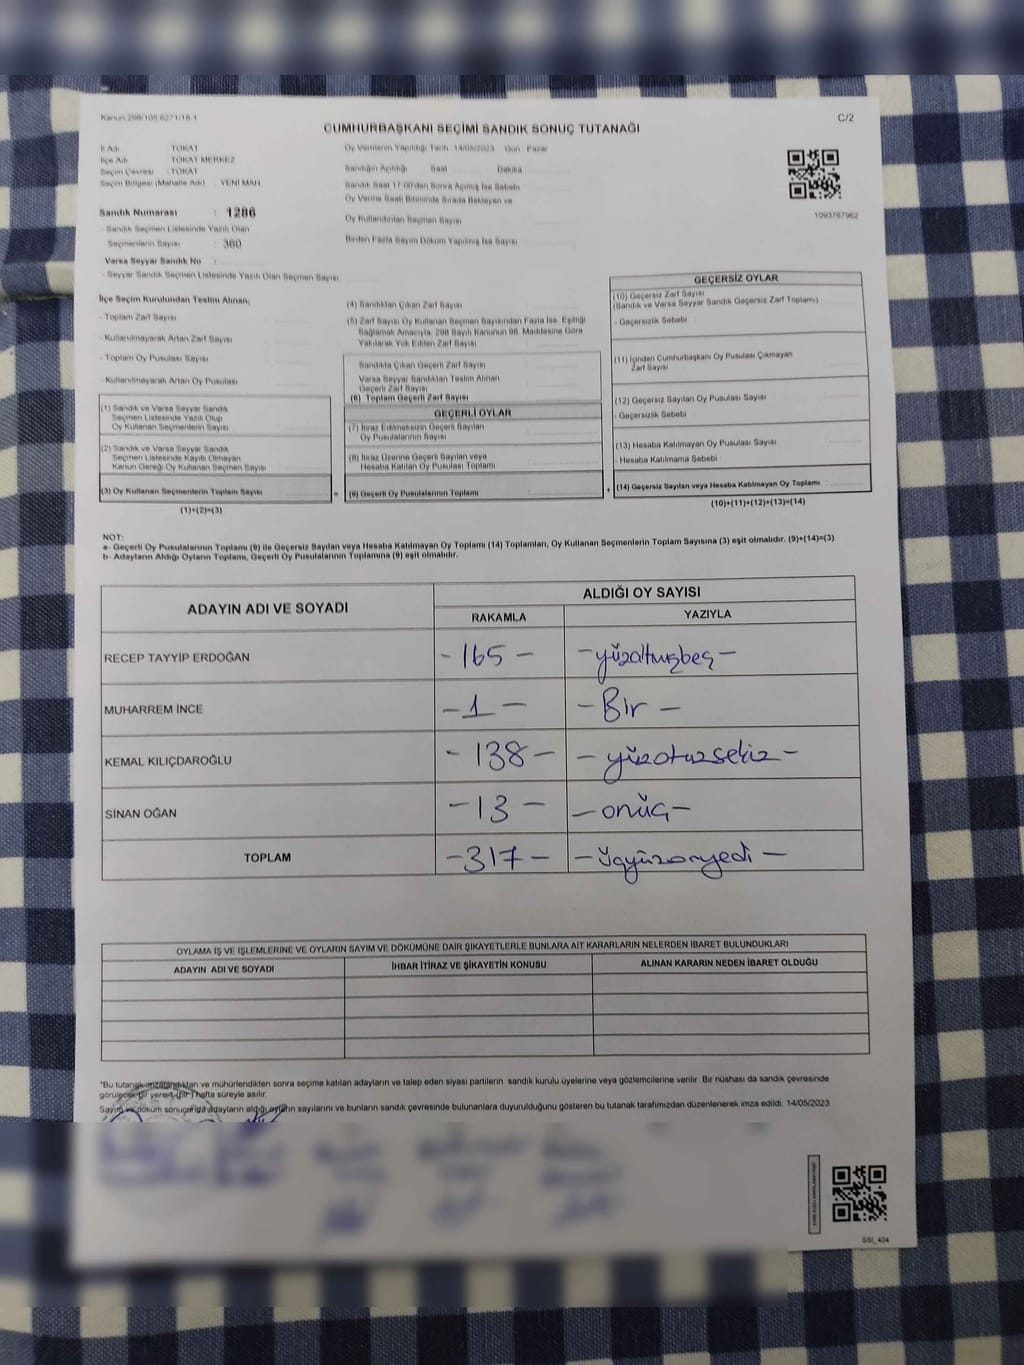 Kanun 298/105 6271/18-1
C/2
CUMHURBAŞKANI SEÇİMİ SANDIK SONUÇ TUTANAĞI
İl Adı : TOKAT
İlçe Adı : TOKAT MERKEZ
Seçim Çevresi : TOKAT
Seçim Bölgesi (Mahalle Adı) : YENİ MAH.
Sandık Numarası : 1286
- Sandık Seçmen Listesinde Yazılı Olan
Seçmenlerin Sayısı : 360
Varsa Seyyar Sandık No :
- Seyyar Sandık Seçmen Listesinde Yazılı Olan Seçmen Sayısı
Oy Vermenin Yapıldığı Tarih 14/05/2023 Gün Pazar
Sandığın Açıldığı Saat Dakika
Sandık Saat 17:00'den Sonra Açılmış İse Sebebi
Oy Verme Saati Bitiminde Sırada Bekleyen ve
Oy Kullandırılan Seçmen Sayısı
Birden Fazla Sayım Döküm Yapılmış İse Sayısı
1093767962
İlçe Seçim Kurulundan Teslim Alınan;
- Toplam Zarf Sayısı
- Kullanılmayarak Artan Zarf Sayısı
- Toplam Oy Pusulası Sayısı
- Kullanılmayarak Artan Oy Pusulası
(1) Sandık ve Varsa Seyyar Sandık
Seçmen Listesinde Yazılı Olup
Oy Kullanan Seçmenlerin Sayısı
(2) Sandık ve Varsa Seyyar Sandık
Seçmen Listesinde Kayıtlı Olmayan
Kanun Gereği Oy Kullanan Seçmen Sayısı
(3) Oy Kullanan Seçmenlerin Toplam Sayısı
(1)+(2)=(3)
(4) Sandıktan Çıkan Zarf Sayısı
(5) Zarf Sayısı Oy Kullanan Seçmen Sayısından Fazla İse, Eşitliği
Sağlamak Amacıyla, 298 Sayılı Kanunun 98. Maddesine Göre
Yakılarak Yok Edilen Zarf Sayısı
Sandıkta Çıkan Geçerli Zarf Sayısı
Varsa Seyyar Sandıktan Teslim Alınan
Geçerli Zarf Sayısı
(6) Toplam Geçerli Zarf Sayısı
GEÇERLİ OYLAR
(7) İtiraz Edilmeksizin Geçerli Sayılan
Oy Pusulalarının Sayısı
(8) İtiraz Üzerine Geçerli Sayılan veya
Hesaba Katılan Oy Pusulası Toplamı
(9) Geçerli Oy Pusulalarının Toplamı
GEÇERSİZ OYLAR
(10) Geçersiz Zarf Sayısı
(Sandık ve Varsa Seyyar Sandık Geçersiz Zarf Toplamı)
- Geçersizlik Sebebi
(11) İçinden Cumhurbaşkanı Oy Pusulası Çıkmayan
Zarf Sayısı
(12) Geçersiz Sayılan Oy Pusulası Sayısı
- Geçersizlik Sebebi
(13) Hesaba Katılmayan Oy Pusulası Sayısı
- Hesaba Katılmama Sebebi
(14) Geçersiz Sayılan veya Hesaba Katılmayan Oy Toplamı
(10)+(11)+(12)+(13)=(14)
NOT:
a- Geçerli Oy Pusulalarının Toplamı (9) ile Geçersiz Sayılan veya Hesaba Katılmayan Oy Toplamı (14) Toplamları, Oy Kullanan Seçmenlerin Toplam Sayısına (3) eşit olmalıdır. (9)+(14)=(3)
b- Adayların Aldığı Oyların Toplamı, Geçerli Oy Pusulalarının Toplamına (9) eşit olmalıdır.
ADAYIN ADI VE SOYADI ALDIĞI OY SAYISI
RAKAMLA YAZIYLA
RECEP TAYYİP ERDOĞAN - 165 - - yüzaltmışbeş -
MUHARREM İNCE - 1 - - Bir -
KEMAL KILIÇDAROĞLU - 138 - - yüzotuzsekiz -
SİNAN OĞAN - 13 - - onüç -
TOPLAM - 317 - - üçyüzonyedi -
OYLAMA İŞ VE İŞLEMLERİNE VE OYLARIN SAYIM VE DÖKÜMÜNE DAİR ŞİKAYETLERLE BUNLARA AİT KARARLARIN NELERDEN İBARET BULUNDUKLARI
ADAYIN ADI VE SOYADI İHBAR İTİRAZ VE ŞİKAYETİN KONUSU ALINAN KARARIN NEDEN İBARET OLDUĞU
*Bu tutanak imzalandıktan ve mühürlendikten sonra seçime katılan adayların ve talep eden siyasi partilerin sandık kurulu üyelerine veya gözlemcilerine verilir. Bir nüshası da sandık çevresinde
görülecek bir yere 1 (bir) hafta süreyle asılır.
Sayım ve döküm sonucunda adayların aldığı oyların sayılarını ve bunların sandık çevresinde bulunanlara duyurulduğunu gösteren bu tutanak tarafımızdan düzenlenerek imza edildi. 14/05/2023
SSI_404